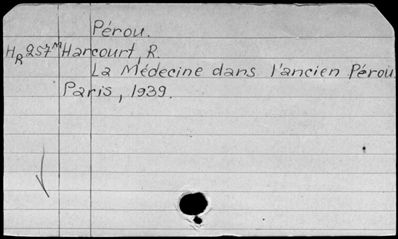 Pérou.
HR 257M Harcourt, R.
La Médecine dans l'ancien Pérou
Paris, 1939.